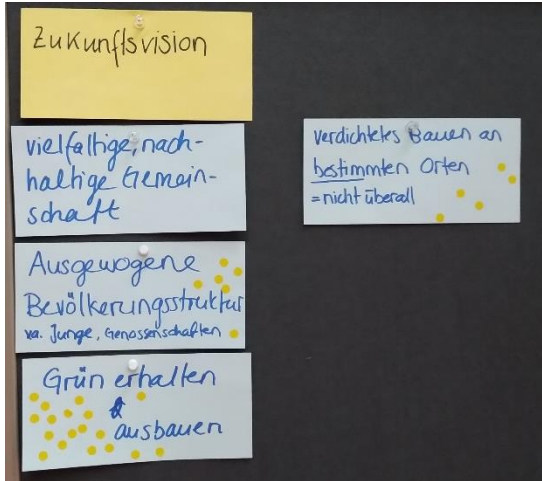 Zukunftsvision
vielfältige, nach-
haltige Gemein-
schaft
Ausgewogene
Bevölkerungsstruktur
va. Junge, Genossenschaften
Grün erhalten
&
ausbauen
verdichtetes Bauen an
bestimmten Orten
= nicht überall